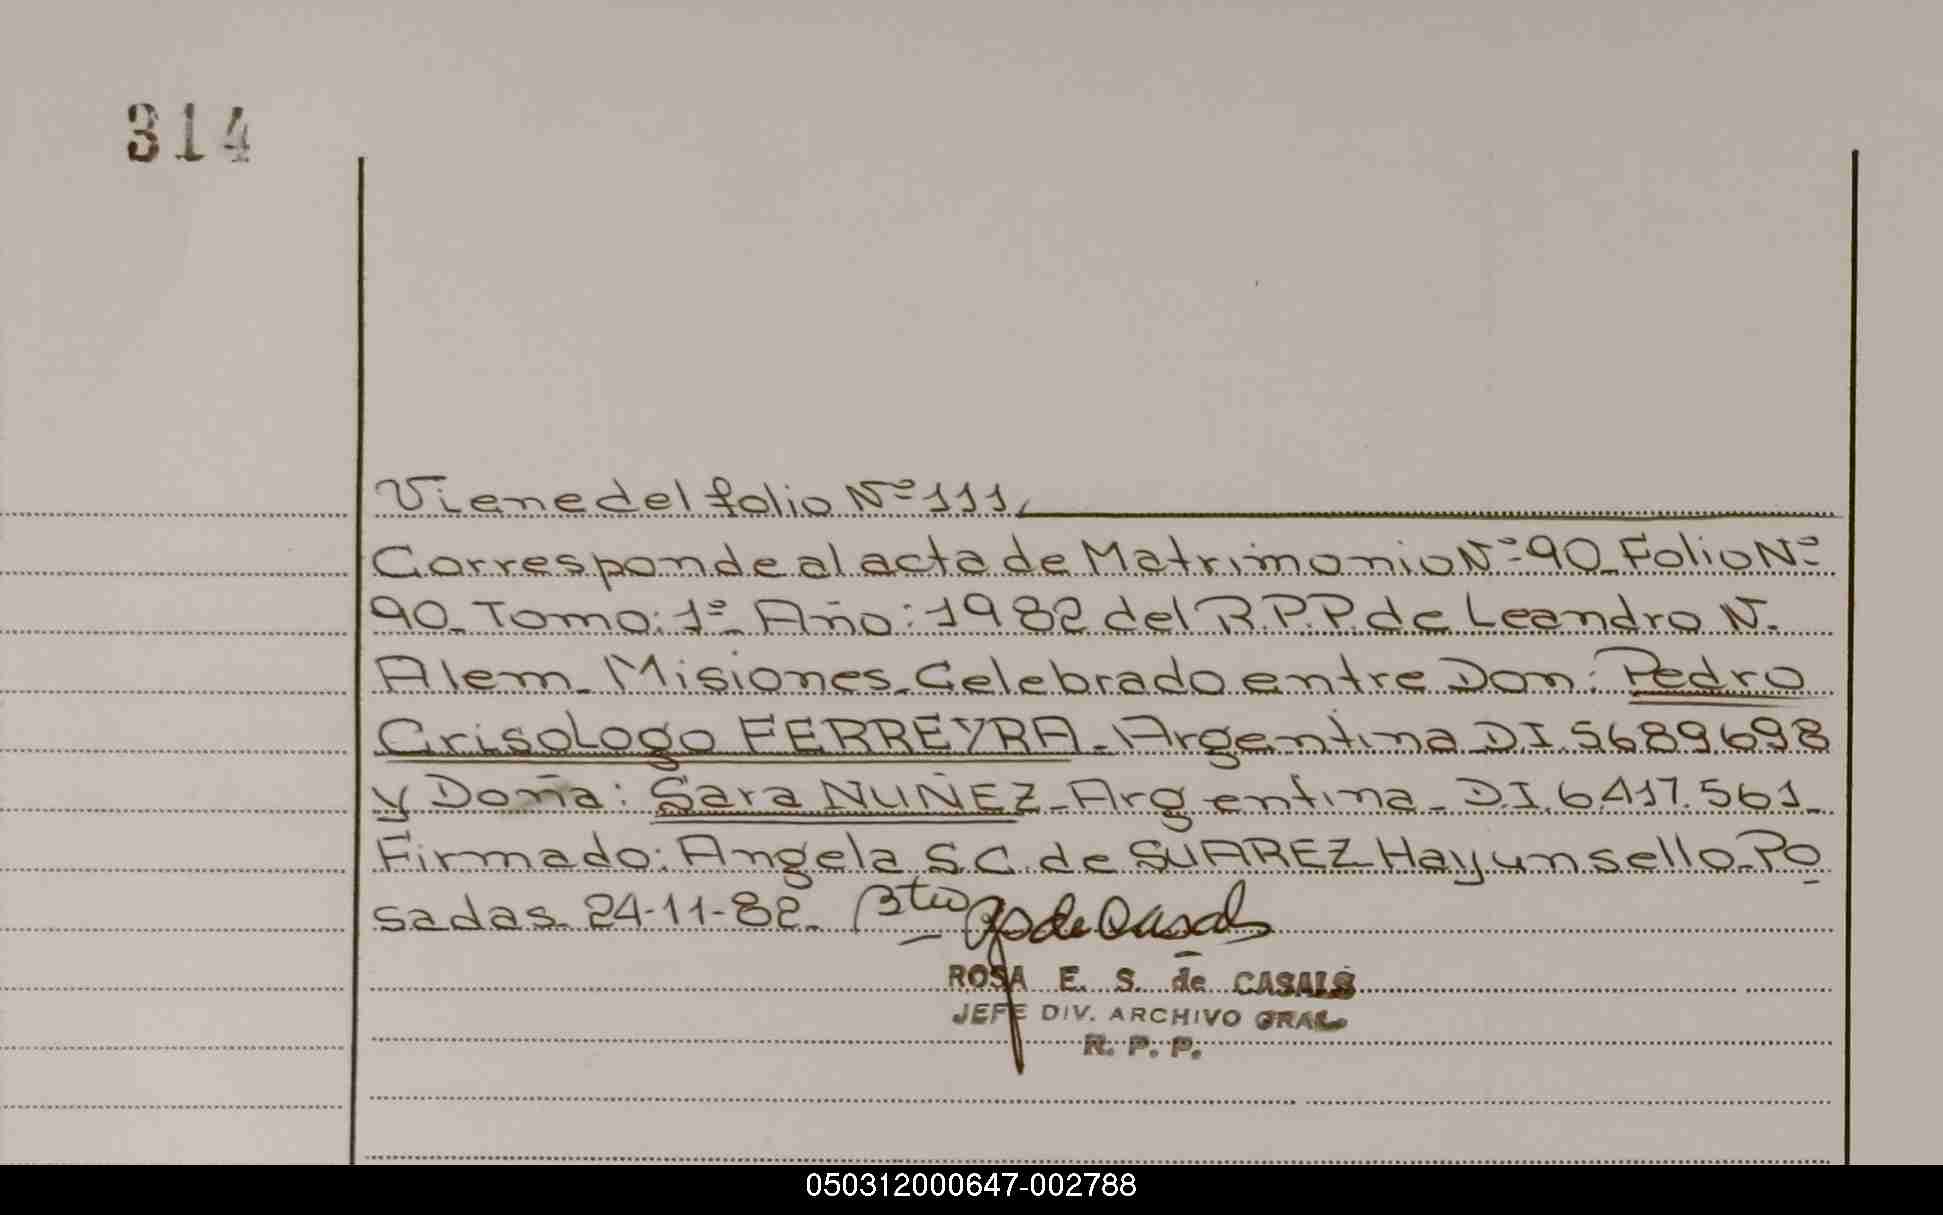 314
Viene del folio Nº 111,
Corresponde al acta de Matrimonio Nº 90_ Folio Nº
90_ Tomo: 1º_ Año: 1982 del R.P.P. de Leandro N.
Alem_ Misiones_ Celebrado entre Don: Pedro
Crisologo FERREYRA_ Argentina D.I. 5689698
y Doña: Sara NUÑEZ_ Argentina_ D.I. 6.417.561_
Firmado: Angela S.C. de SUAREZ_ Hay un sello_ Po
sadas_ 24-11-82_ de Casals
ROSA E. S. de CASALS
JEFE DIV. ARCHIVO GRAL.
R. P. P.
050312000647-002788